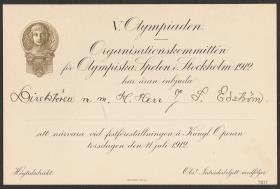 V. Olympiaden.
Organisationskommittén
för Olympiska Spelen i Stockholm 1912
har äran inbjuda
Direktören m. m. H. Herr J. S. Edström
att närvara vid festföreställningen å Kungl. Operan
torsdagen den 11 juli 1912.
Högtidsdräkt.
Obs! Inträdesbiljett medföljer.